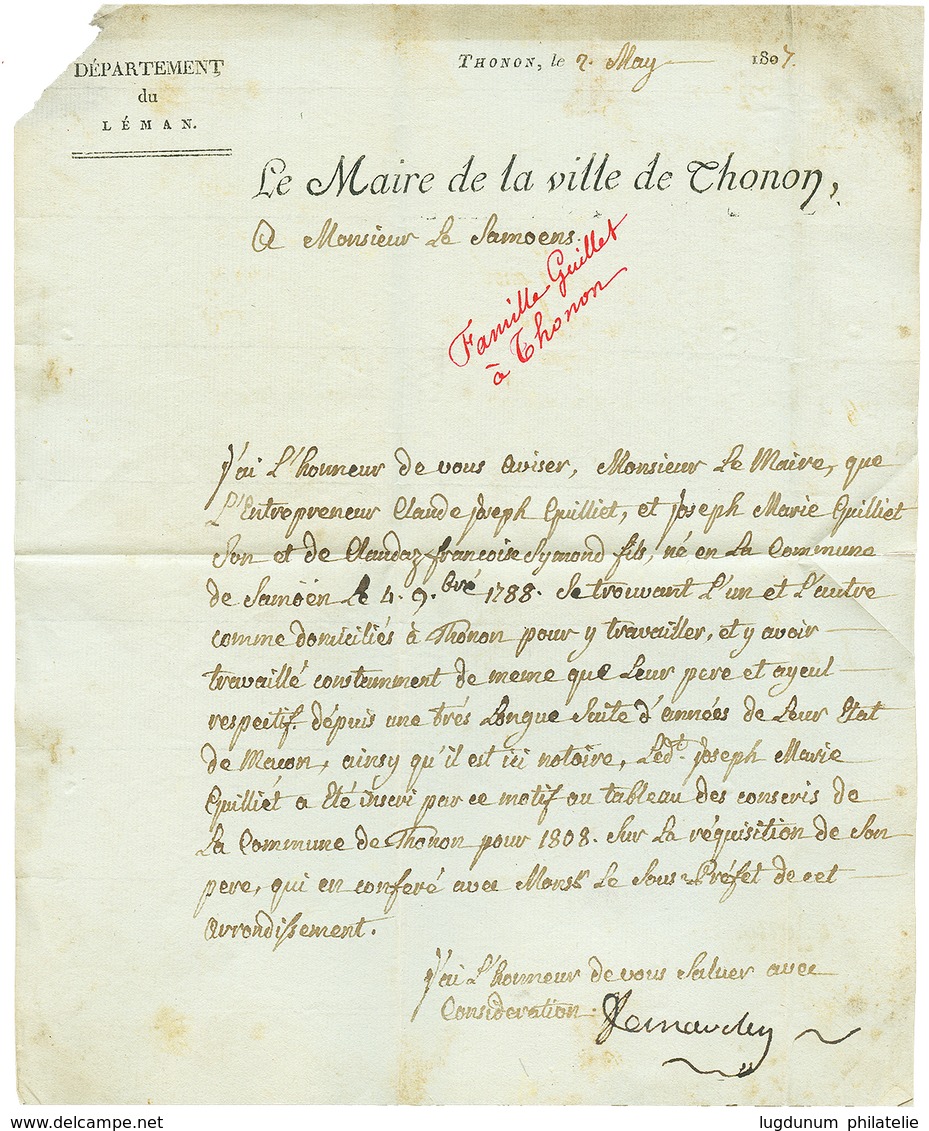 DÉPARTEMENT
du
LÉMAN.
THONON, le 2. May 1807.
Le Maire de la ville de Thonon,
A Monsieur Le Samoens.
Famille Guillet
à Thonon
J'ai L'honneur de vous aviser, Monsieur Le Maire, que
L'Entrepreneur Claude Joseph Guilliet, et Joseph Marie Guilliet
Son et de Claudaz francoise Symond fils, né en La Commune
de Samoën Le 4. 9.bré 1788. Se trouvant L'un et L'autre
comme domiciliés à Thonon pour y travailler, et y avoir
travaillé constamment de meme que Leur pere et ayeul
respectif. dépuis une trés Longue Suite d'années de Leur Etat
de Macon, ainsy qu'il est ici notoire, Led.t Joseph Marie
Guilliét a Eté inscri par ce motif au tableau des conscris de
La Commune de Thonon pour 1808. Sur La réquisition de Son
pere, qui en conferé avec Monsr. Le Sous-Préfet de cet
arrondissement.
J'ai L'honneur de vous Saluer avec
Consideration.
lugdunum philatelie